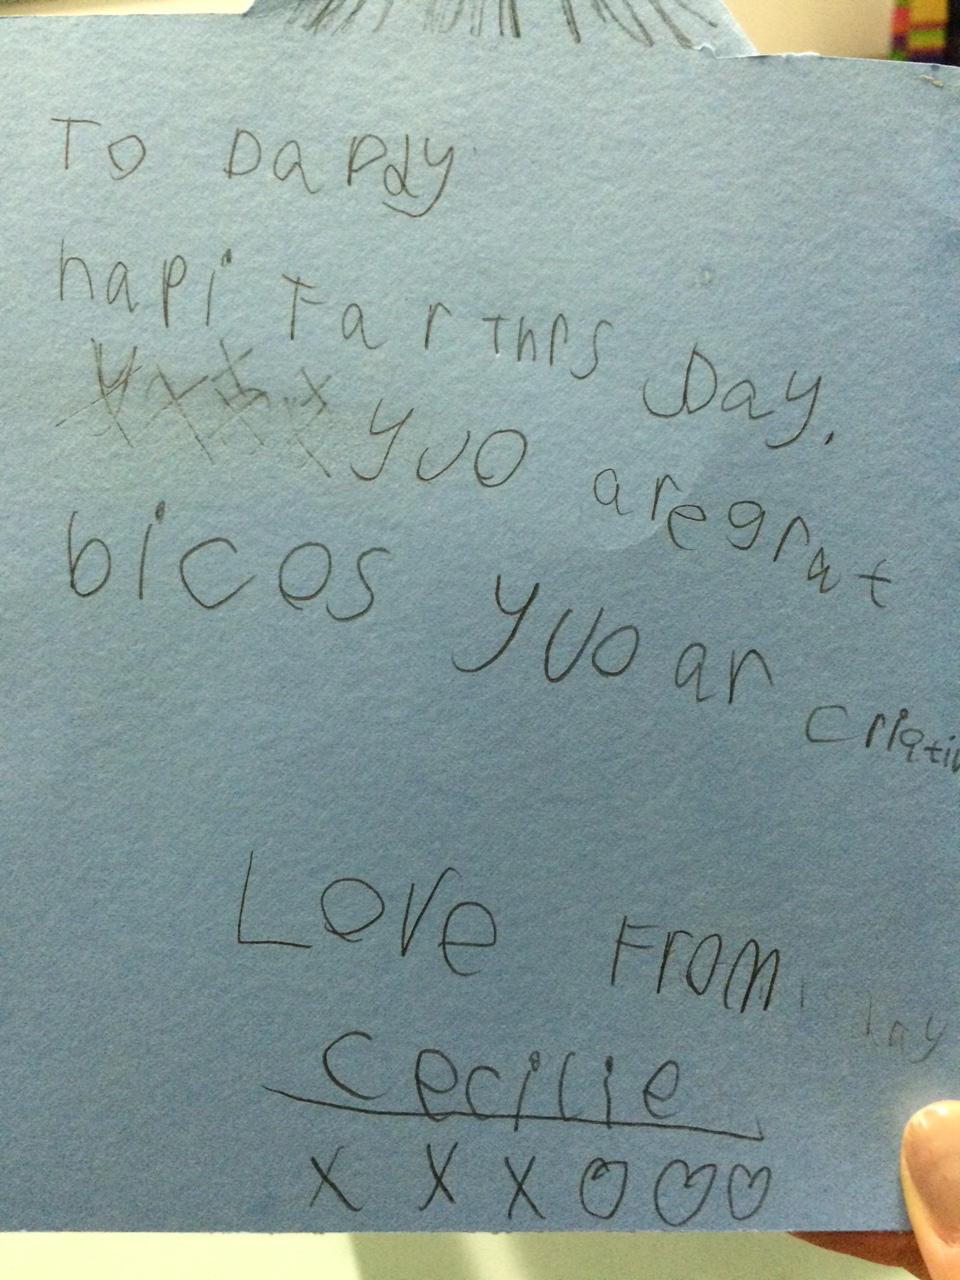 To Daddy
hapi Farthrs Day.
yuo are grat
bicos yuo ar criativ
Love From
Cecilie
x x x o